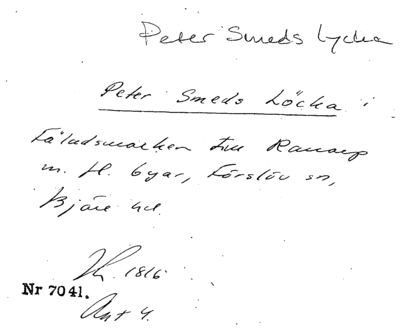 Peter Smeds Lycka
Peter Smeds Löcka i
Fäladsmarken till Ramarp
m. fl. byar, Förslöv sn,
Bjäre hd.
1816
Nr 7041.
Akt 4.